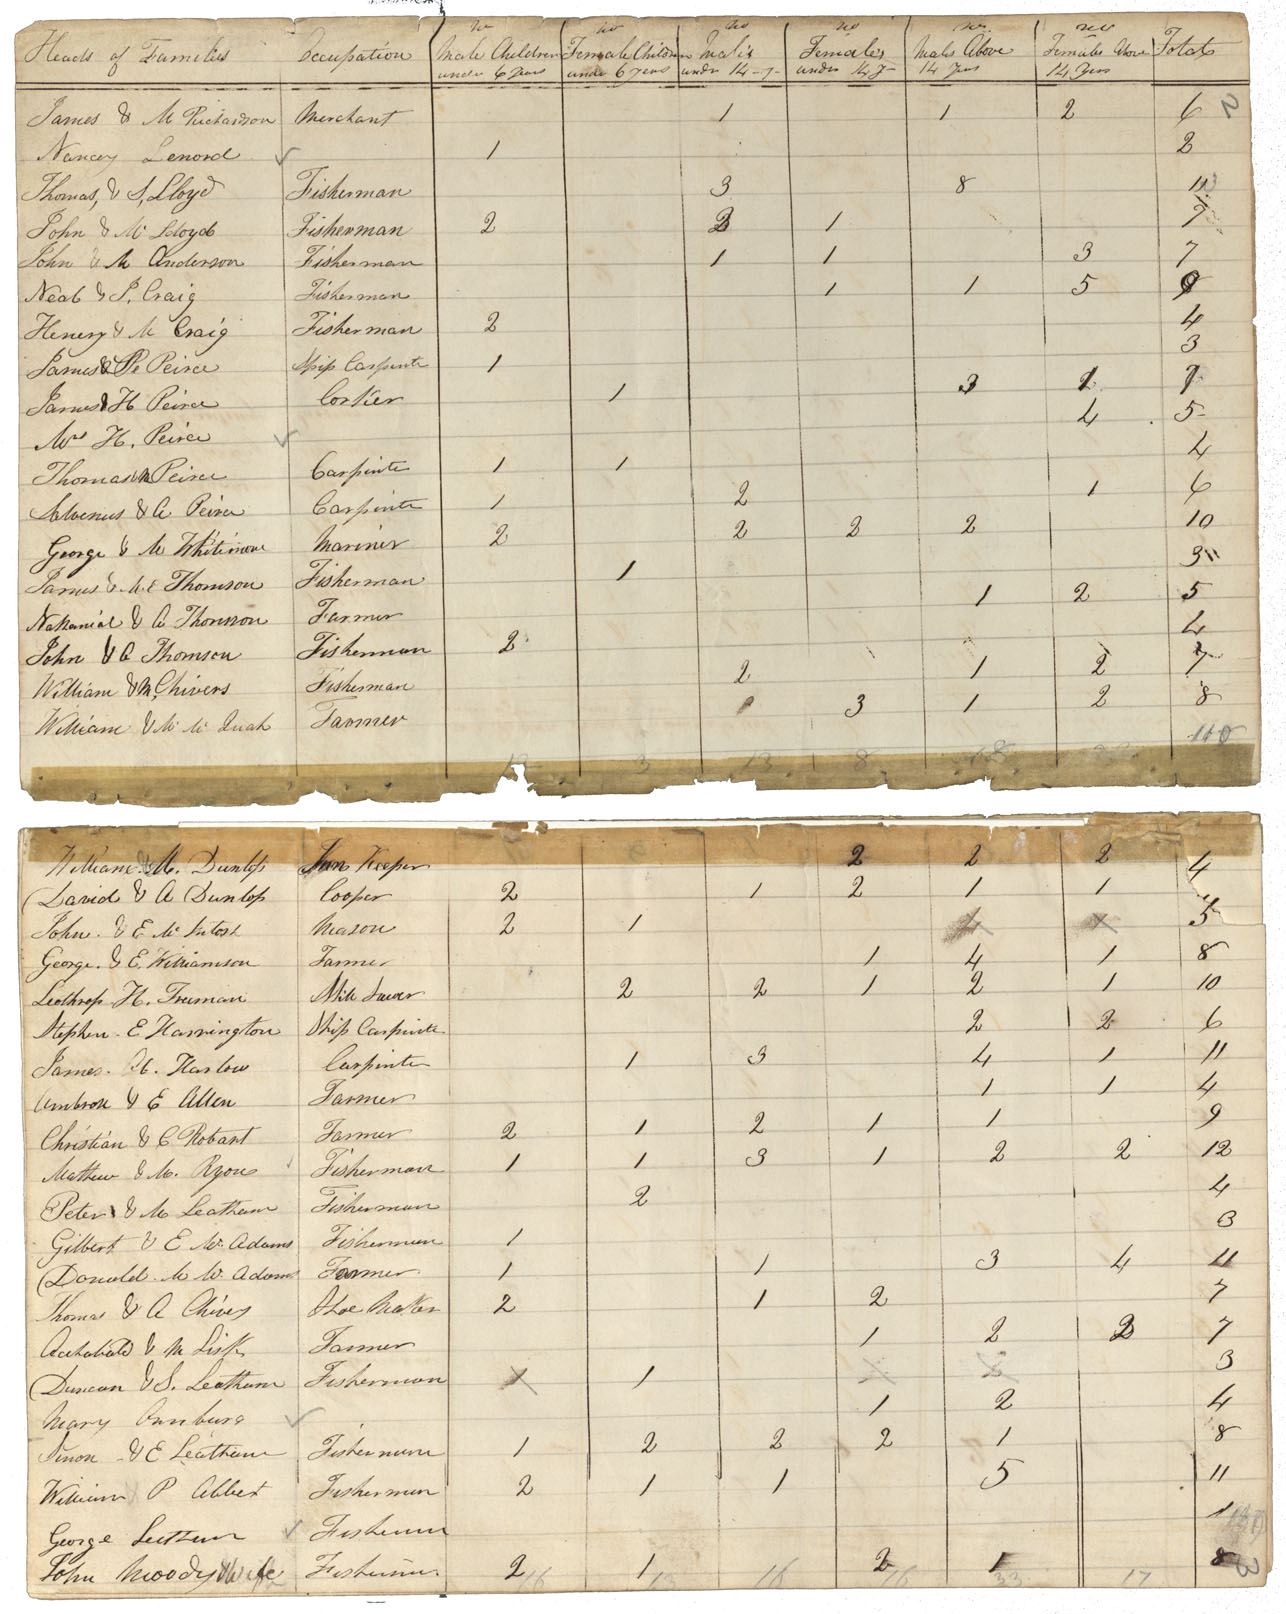 Heads of Families Occupation No Male Children under 6 Years No Female Children under 6 years No Males under 14 y No Females under 14 y No Males Above 14 Years No Females Above 14 Years Total
James & M Richardson Merchant 1 1 2 6
Nancey Lenord 1 2
Thomas, & S, Lloyd Fisherman 3 8
John & M Lloyd Fisherman 2 1 7
John & M Anderson Fisherman 1 1 3 7
Neal & S. Craig Fisherman 1 1 5 9
Henery & M Craig Fisherman 2 4
James & Peirce Ship Carpinte 1 3
James & H Peirce Corkier 1 3
Mrs H. Peirce 4 5
Thomas M Peirce Carpinte 1 1 4
Silvenus & A Peirce Carpinte 1 2 1 6
George & M Whitimore Mariner 2 2 2 2 10
James & M. E Thomson Fisherman 1 3
Nathanial & A Thomson Farmer 1 2 5
John & A Thomson Fisherman 2 4
William & M, Chivers Fisherman 2 1 2 7
William & M. Mc Quah Farmer 3 1 2 8
110
3 13 8 18
William. & M. Dunlop Inn Keeper 2 2 2 4
David & A Dunlop Cooper 2 1 2 1 1
John. & E Mc Intosh Mason 2 1 5
George. & E. Williamson Farmer 1 4 1 8
Leothrop H. Truman Mill Sawer 2 2 1 2 1 10
Stephen. E Harrington Ship Carpinte 2 2 6
James. H. Harlow Carpinte 1 3 4 1 11
Ambros & E Allen Farmer 1 1 4
Christian & C Robart Farmer 2 1 2 1 1 9
Mathew & M. Ryons Fisherman 1 1 3 1 2 2 12
Peter & M Leatham Fisherman 2 4
Gilbert & E Mc Adams Fisherman 1 3
Donald. M Mc Adams Farmer 1 1 3 4 11
Thomas & A Chivers Shoe Maker 2 1 2 7
Archabald & M Lisk Farmer 1 2 2 7
Duncan & S. Leatham Fisherman 1 3
Mary 1 2 4
Simon & E Leatham Fisherman 1 2 2 2 1 8
William P Abbet Fisherman 2 1 1 5 11
George Leatham Fisherman 1
John Moody & Wife Fisherman 2 1 2 1 8
16 13 16 16 33 17